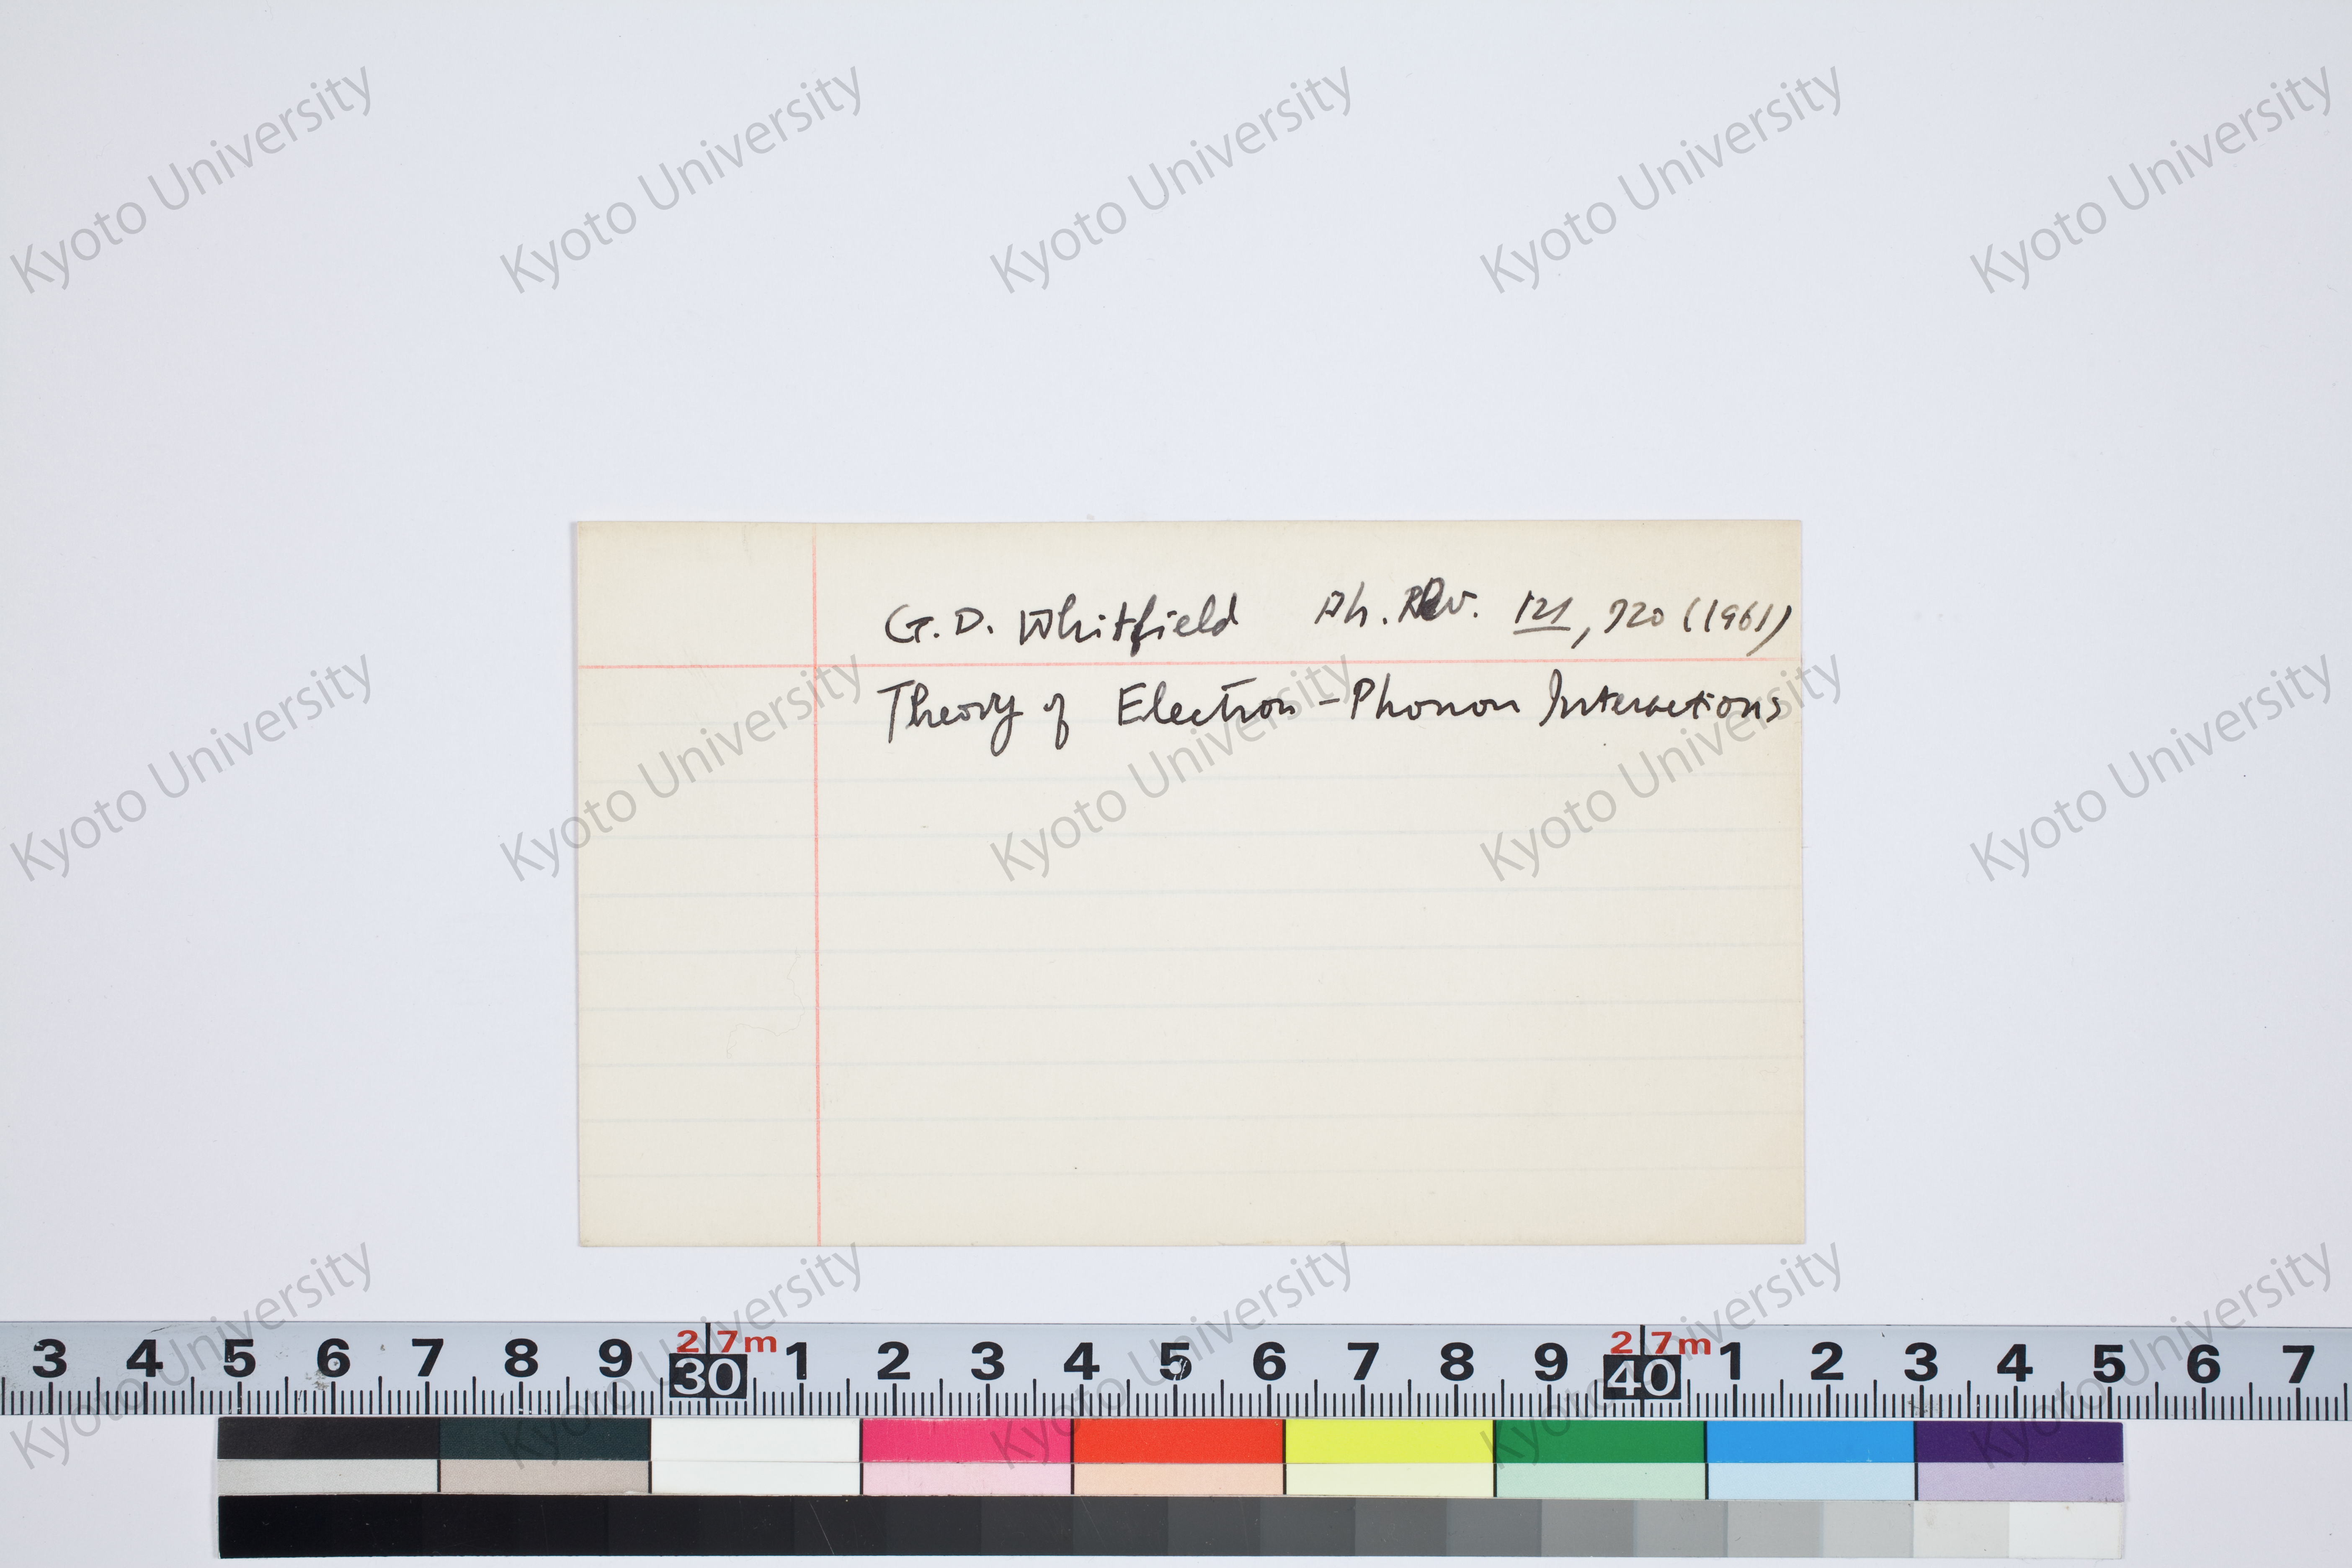 Kyoto University Kyoto University Kyoto University Kyoto University Kyoto University
G. D. Whitfield Ph. Rev. 121, 720 (1961)
Theory of Electron-Phonon Interactions
Kyoto University Kyoto University Kyoto University Kyoto University Kyoto University
Kyoto University Kyoto University Kyoto University Kyoto University Kyoto University
3 4 5 6 7 8 9 30 1 2 3 4 5 6 7 8 9 40 1 2 3 4 5 6 7
2 7m 2 7m